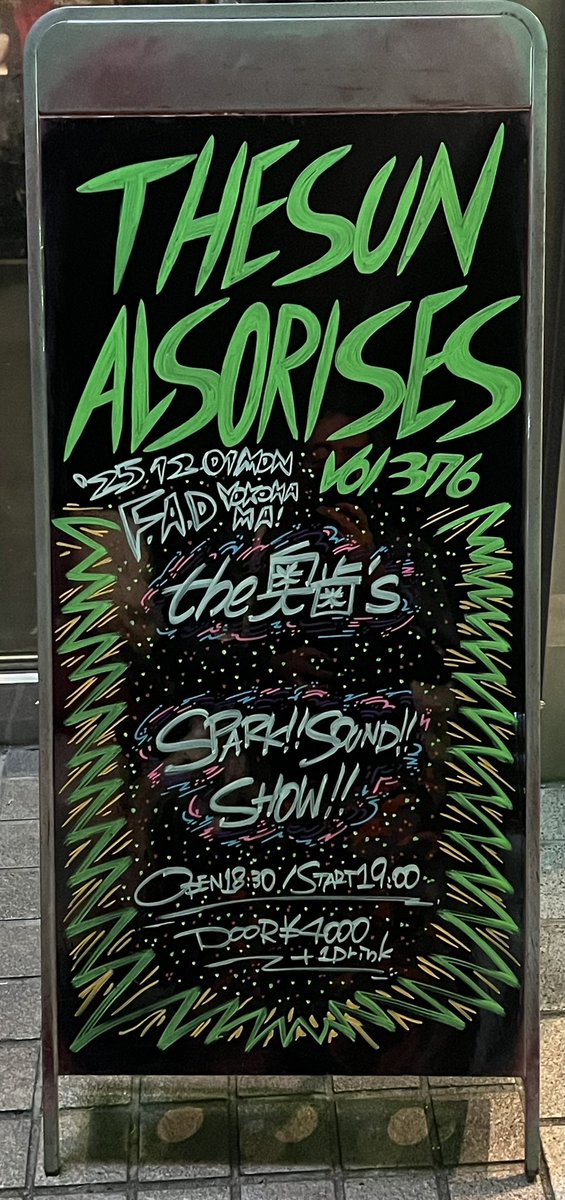 THE SUN
ALSO RISES
'25 12 01 MON
vol 376
F.A.D YOKOHAMA!
the奥歯's
SPARK!!SOUND!!
SHOW!!
OPEN18:30/START19:00
DOOR ¥4000
+1Drink